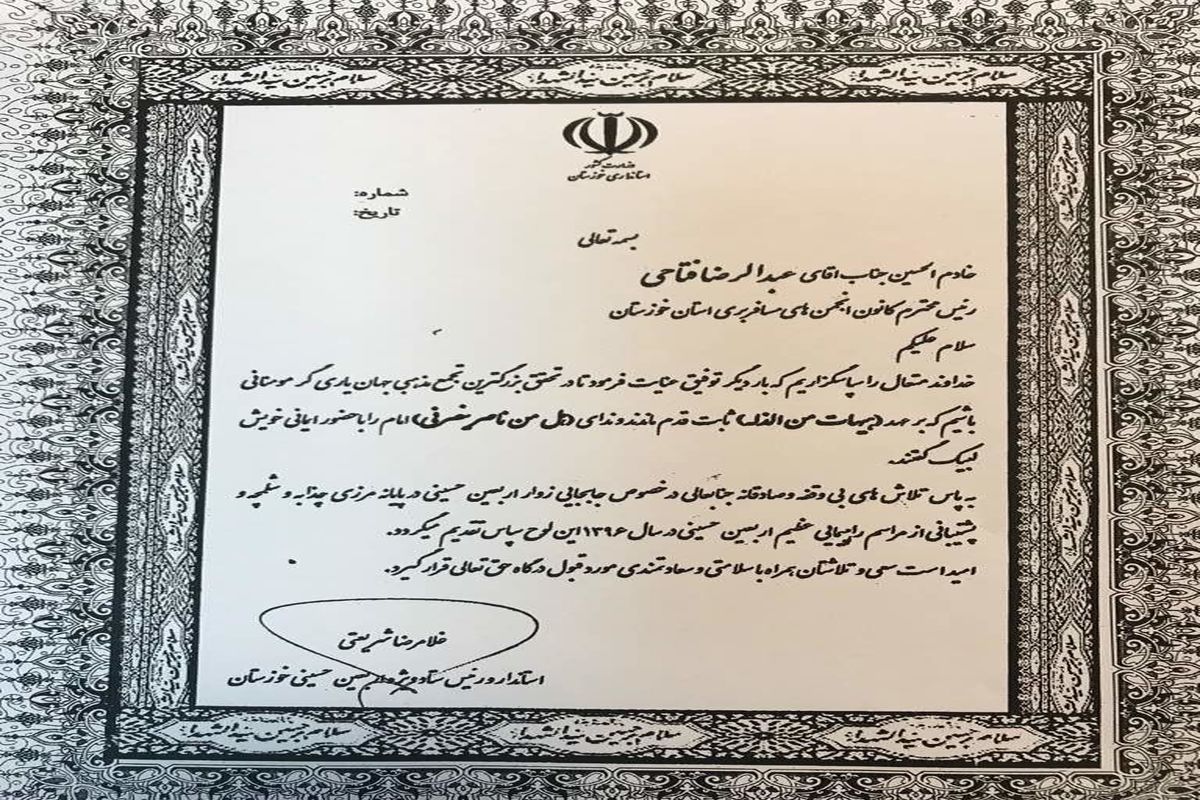 سلام بر حسین سیدالشهدا سلام بر حسین سیدالشهدا سلام بر حسین سیدالشهدا
وزارت کشور
استانداری خوزستان
شماره:
تاریخ:
بسمه تعالی
خادم الحسین جناب اقای عبدالرضا فتاحی
رئیس محترم کانون انجمن های مسافربری استان خوزستان
سلام علیکم
خداوند متعال را سپاسگزاریم که بار دیگر توفیق عنایت فرمود تا در تحقق بزرگترین تجمع مذهبی جهان یاری گر مومنانی
باشیم که بر عهد (هیهات من الذله) ثابت قدم ماندند و ندای (هل من ناصر ینصرنی) امام را با حضور ایمانی خویش
لبیک گفتند.
به پاس تلاش های بی وقفه و صادقانه جنابعالی در خصوص جابجایی زوار اربعین حسینی در پایانه مرزی چذابه و شلمچه و
پشتیبانی از مراسم راهپیمایی عظیم اربعین حسینی در سال ۱۳۹۶ این لوح سپاس تقدیم میگردد.
امید است سعی و تلاشتان همراه با سلامتی و سعادتمندی مورد قبول درگاه حق تعالی قرار گیرد.
غلامرضا شریعتی
استاندار و رئیس ستاد ویژه اربعین حسینی خوزستان
سلام بر حسین سیدالشهدا سلام بر حسین سیدالشهدا سلام بر حسین سیدالشهدا